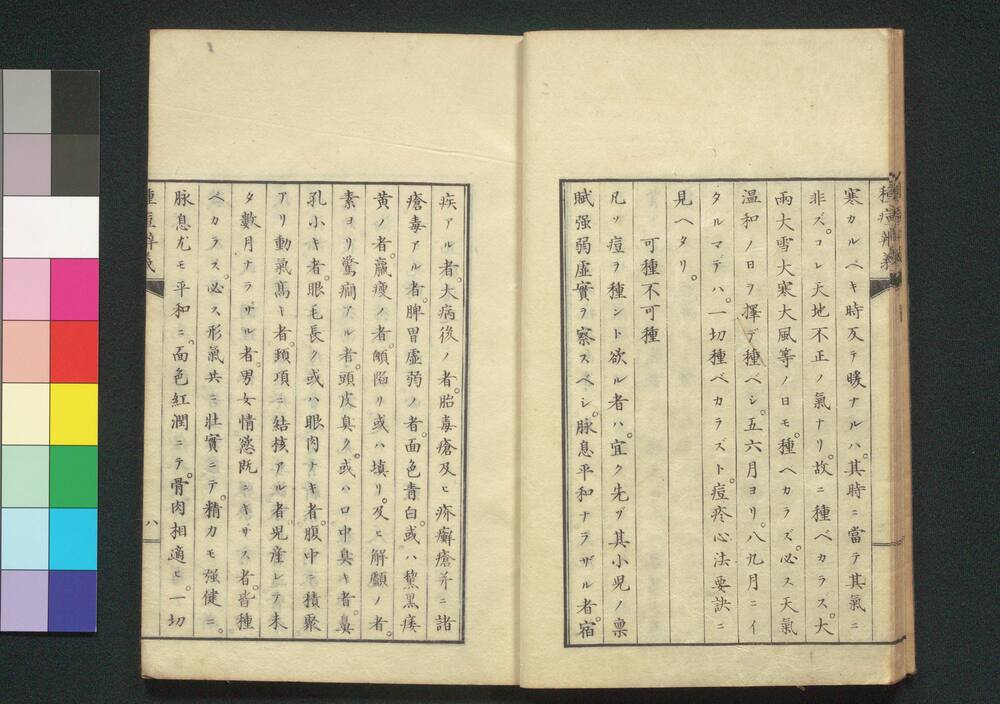 種痘辨義
寒カルベキ時反テ暖ナルハ。其時ニ當テ其氣ニ
非ズ。コレ天地不正ノ氣ナリ。故ニ種ベカラス。大
雨大雪大寒大風等ノ日モ。種ヘカラズ。必ス天氣
温和ノ日ヲ擇デ種ベシ。五六月ヨリ。八九月ニイ
タルマデハ。一切種ベカラズト。痘疹心法要訣ニ
見ヘタリ。
可種不可種
凡ソ痘ヲ種ント欲ル者ハ。宜ク先ヅ其小児ノ禀
賦强弱虚實ヲ察スベシ。脉息平和ナラザル者。宿
疾アル者。大病後ノ者。胎毒瘡及ヒ疥癬瘡并ニ諸
瘡毒アル者。脾胃虚弱ノ者。面色青白。或ハ黧黒痿
黄ノ者。羸瘦ノ者。顖陷リ或ハ填リ。及ヒ解顱ノ者。
素ヨリ驚癇アル者。頭皮臭ク。或ハ口中臭キ者。鼻
孔小キ者。眼毛長ク或ハ眼肉ナキ者。腹中ニ積聚
アリ動氣高キ者。頸項ニ結核アル者。児産レテ未
タ數月ナラザル者。男女情慾既ニキザス者。皆種
ベカラス。必ス形氣共ニ壮實ニテ。精力モ强健ニ。
脉息尤モ平和ニ。面色紅潤ニテ。骨肉相適ヒ。一切
種痘辨義
八